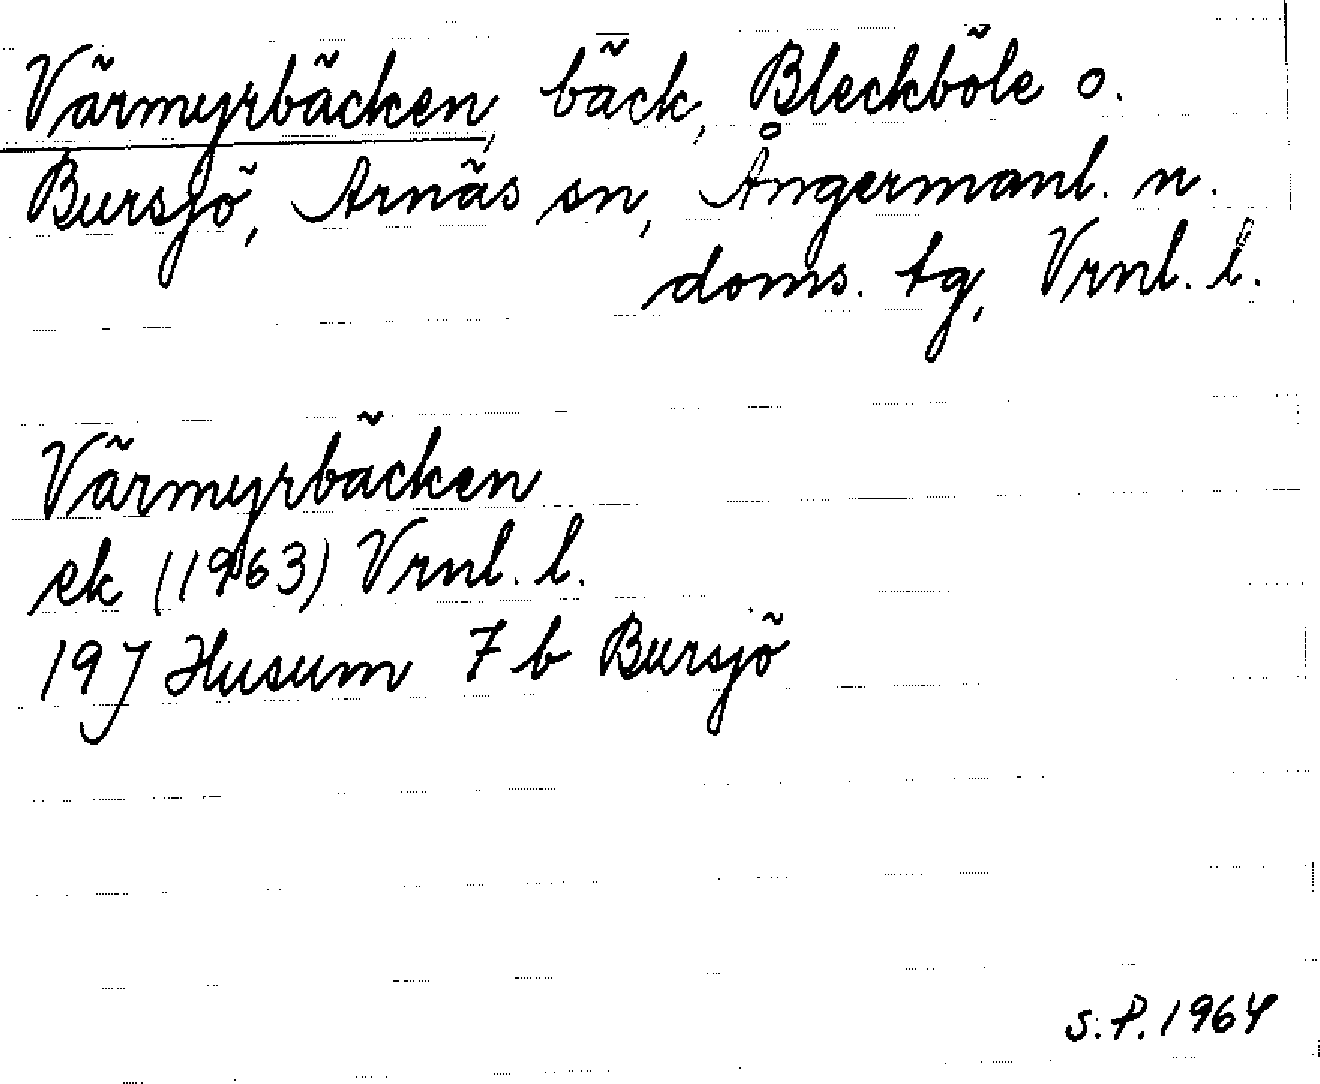 Värmyrbäcken, bäck, Bleckböle o.
Bursjö, Arnäs sn, Ångermanl. n.
doms. tg, Vrnl. l.
Värmyrbäcken
ek (1963) Vrnl. l.
19J Husum 7 b Bursjö
S.P. 1964